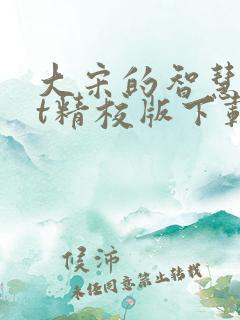 大宋的智慧
t精校版下载
候沛
未经同意禁止转载